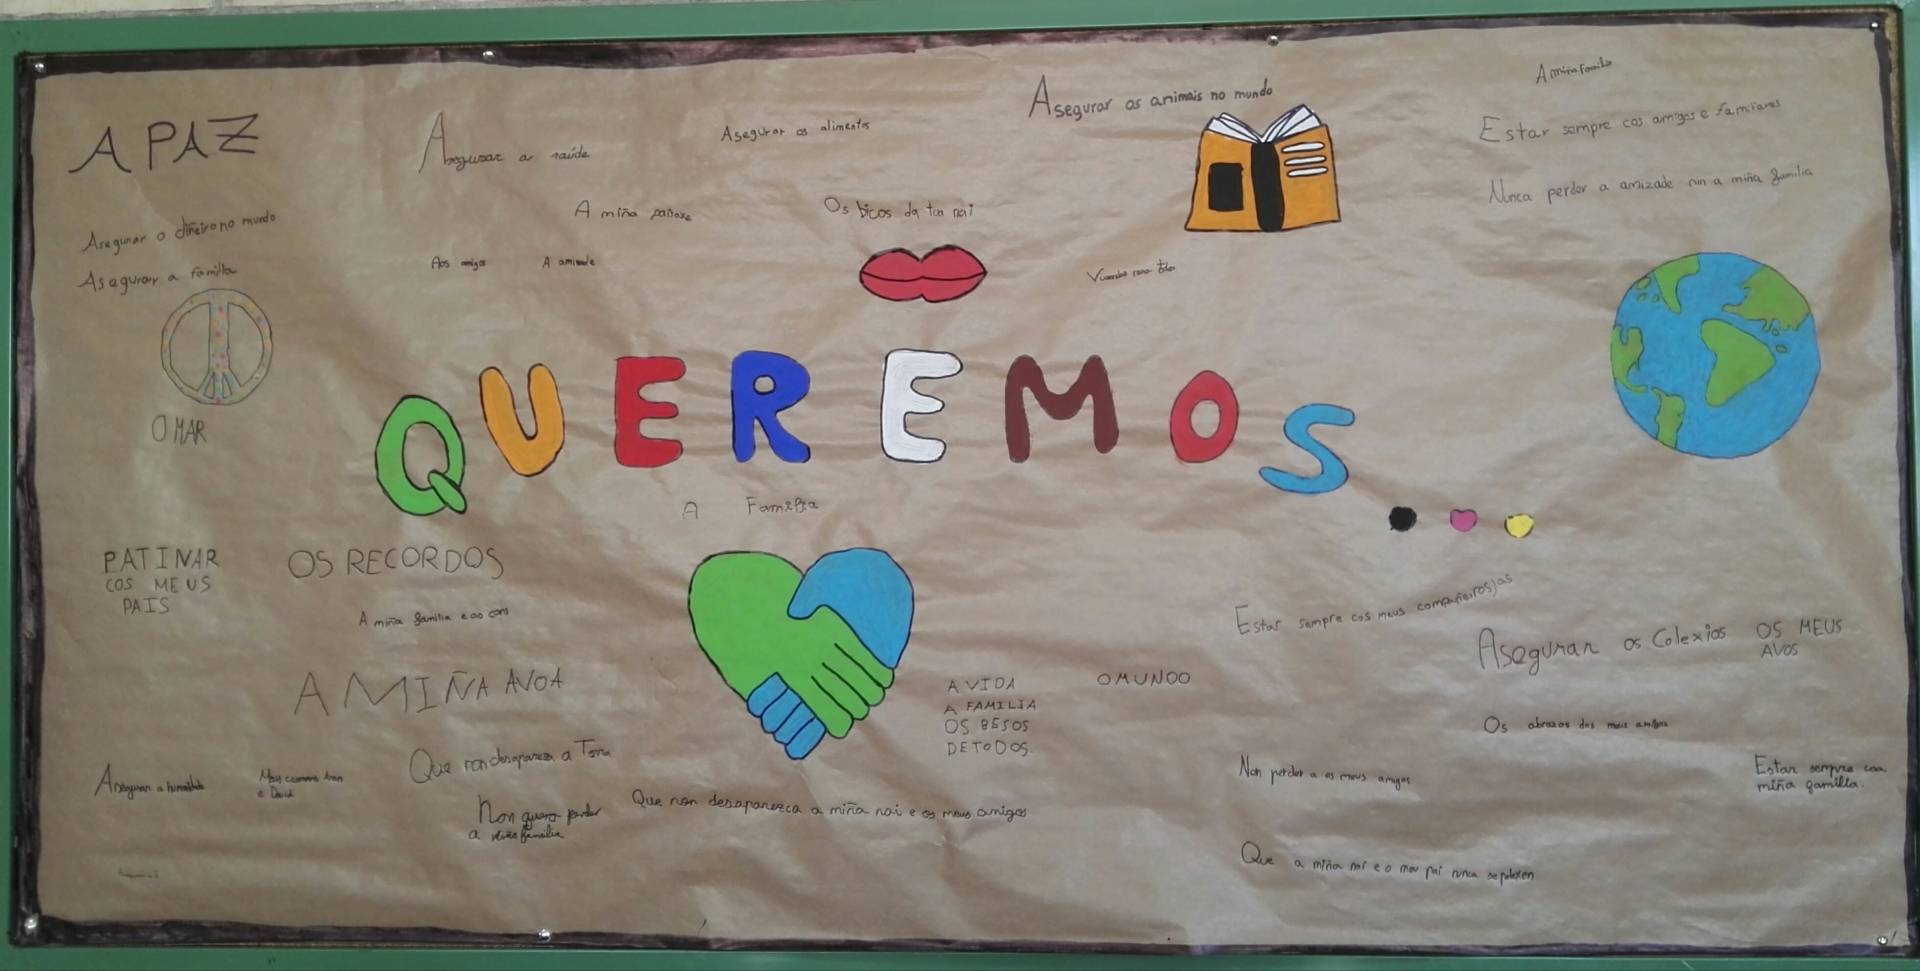 A PAZ
Asegurar a saúde
Asegurar os alimentos
Asegurar os animais no mundo
A miña familia
Estar sempre cos amigos e familiares
Nunca perder a amizade nin a miña familia
A miña
Os bicos da tua nai
Asegurar o diñeiro no mundo
Asegurar a familia
Aos amigos
A amizade
O MAR
QUEREMOS...
A Familia
PATINAR
COS MEUS
PAIS
OS RECORDOS
A miña familia e ao cans
A MIÑA AVOA
Estar sempre cos meus compañeiros/as
Asegurar os Colexios
OS MEUS
AVOS
A VIDA
A FAMILIA
OS BESOS
DE TODOS.
O MUNDO
Os abrazos dos meus amigos
Que non desapareza a Terra
Asegurar a
e David
Non quero perder
a miña familia
Que non desaparezca a miña nai e os meus amigos
Non perder a os meus amigos
Estar sempre coa
miña familia.
Que a miña nai e o meu pai nunca se